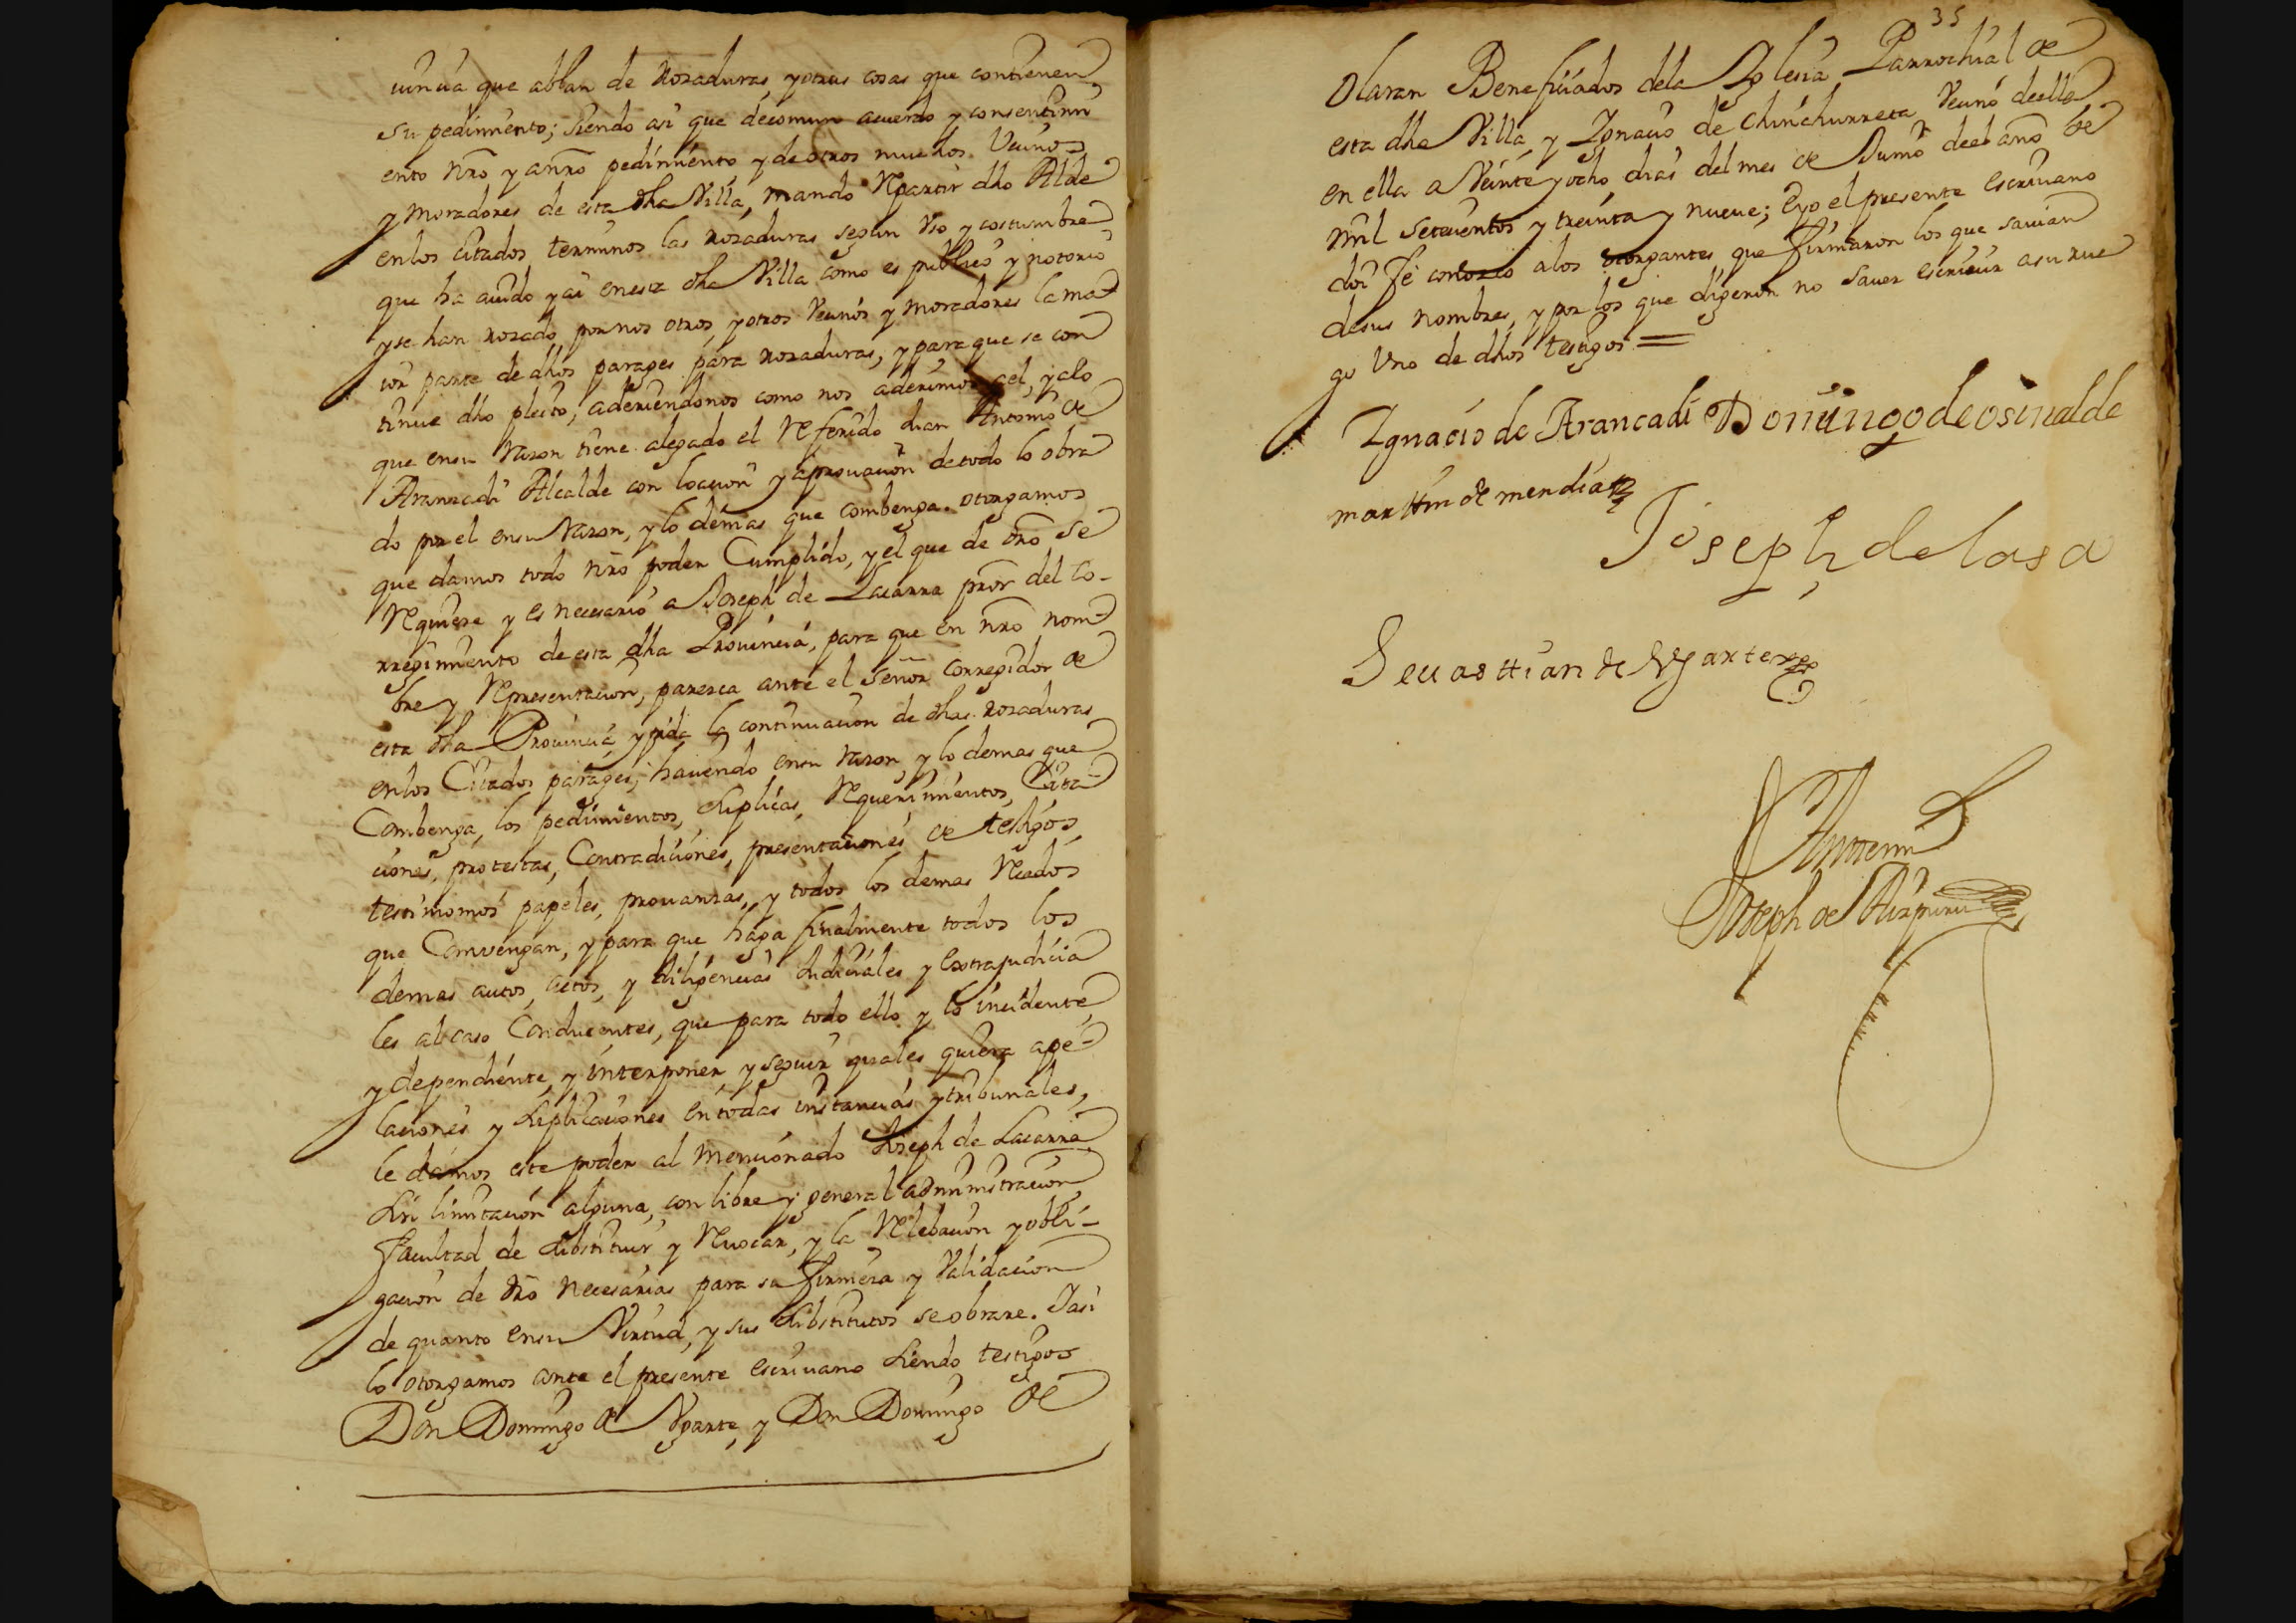 uincia que ablan de Rozaduras, y otras cosas que contienen
su pedimiento; siendo asi que de comun acuerdo y consentimi
ento nro y a nro pedimiento y de otros muchos Vecinos
y moradores de esta dha Villa, mando Repartir dho Alde
en los citados terminos las Rozaduras segun Vso y costumbre
que ha auido y ai en esta dha Villa como es publico y notorio
y se han rozado por nos otros, y otros Vecinos y moradores la ma
ior parte de dhos parages para rozaduras, y para que se con
tinue dho pleito, aderiendonos como nos aderimos a el, y a lo
que en su Razon tiene alegado el Referido Juan Antonio de
Aranzadi Alcalde con loacion y aprouacion de todo lo obra
do por el en su Razon, y lo demas que combenga. otorgamos
que damos todo nro poder Cumplido, y el que de dro se
Requiere y es necesario a Joseph de Lacarra pror del Co-
rregimiento de esta dha Prouincia, para que en nro nom
bre y Representacion, parezca ante el Señor Corregidor de
esta dha Prouincia y pida la continuacion de dhas Rozaduras
en los Citados parages, haciendo en su razon y lo demas que
Combenga, los pedimientos, suplicas, Requerimientos, Cita
ciones, protestas, Contradiciones, presentaciones de testigos,
testimonios papeles, prouanzas, y todos los demas Recados
que Convengan, y para que haga finalmente todos los
demas autos, actos, y diligencias Judiciales y Extrajudicia
les al caso Conducentes, que para todo ello y lo incidente
y dependiente, y interponer y seguir quales quiera ape-
laciones y suplicaciones en todas instancias y tribunales,
le damos este poder al mencionado Joseph de Lacarra
sin limitacion alguna, con libre y general administracion
facultad de substituir y Reuocar, y la Relebacion y obli-
gacion de dro necesarias para sa firmeza y Validacion
de quanto en su Virtud, y sus substitutos se obrare. Iasi
lo otorgamos ante el presente escriuano siendo testigos
Don Domingo de Vgarte, y Don Domingo de
35
Olaran Beneficiados de la Iglesia Parrochial de
esta dha Villa, y Ignacio de Chinchurreta Vecino de ella
en ella a Veinte y ocho dias del mes de Junio de el año de
mil setecientos y treinta y nueve; E yo el presente escriuano
doi fe conozco a los otorgantes que firmaron los que sauian
de sus nombres, y por los que digeron no sauer escriuir a su rue
go Vno de dhos testigos =
Ignacio de Arancadi Domingo de osinalde
marttin de mendia
Joseph de lasa
Seuasttian de Vgarte
Antemi
Joseph de Aizpuru